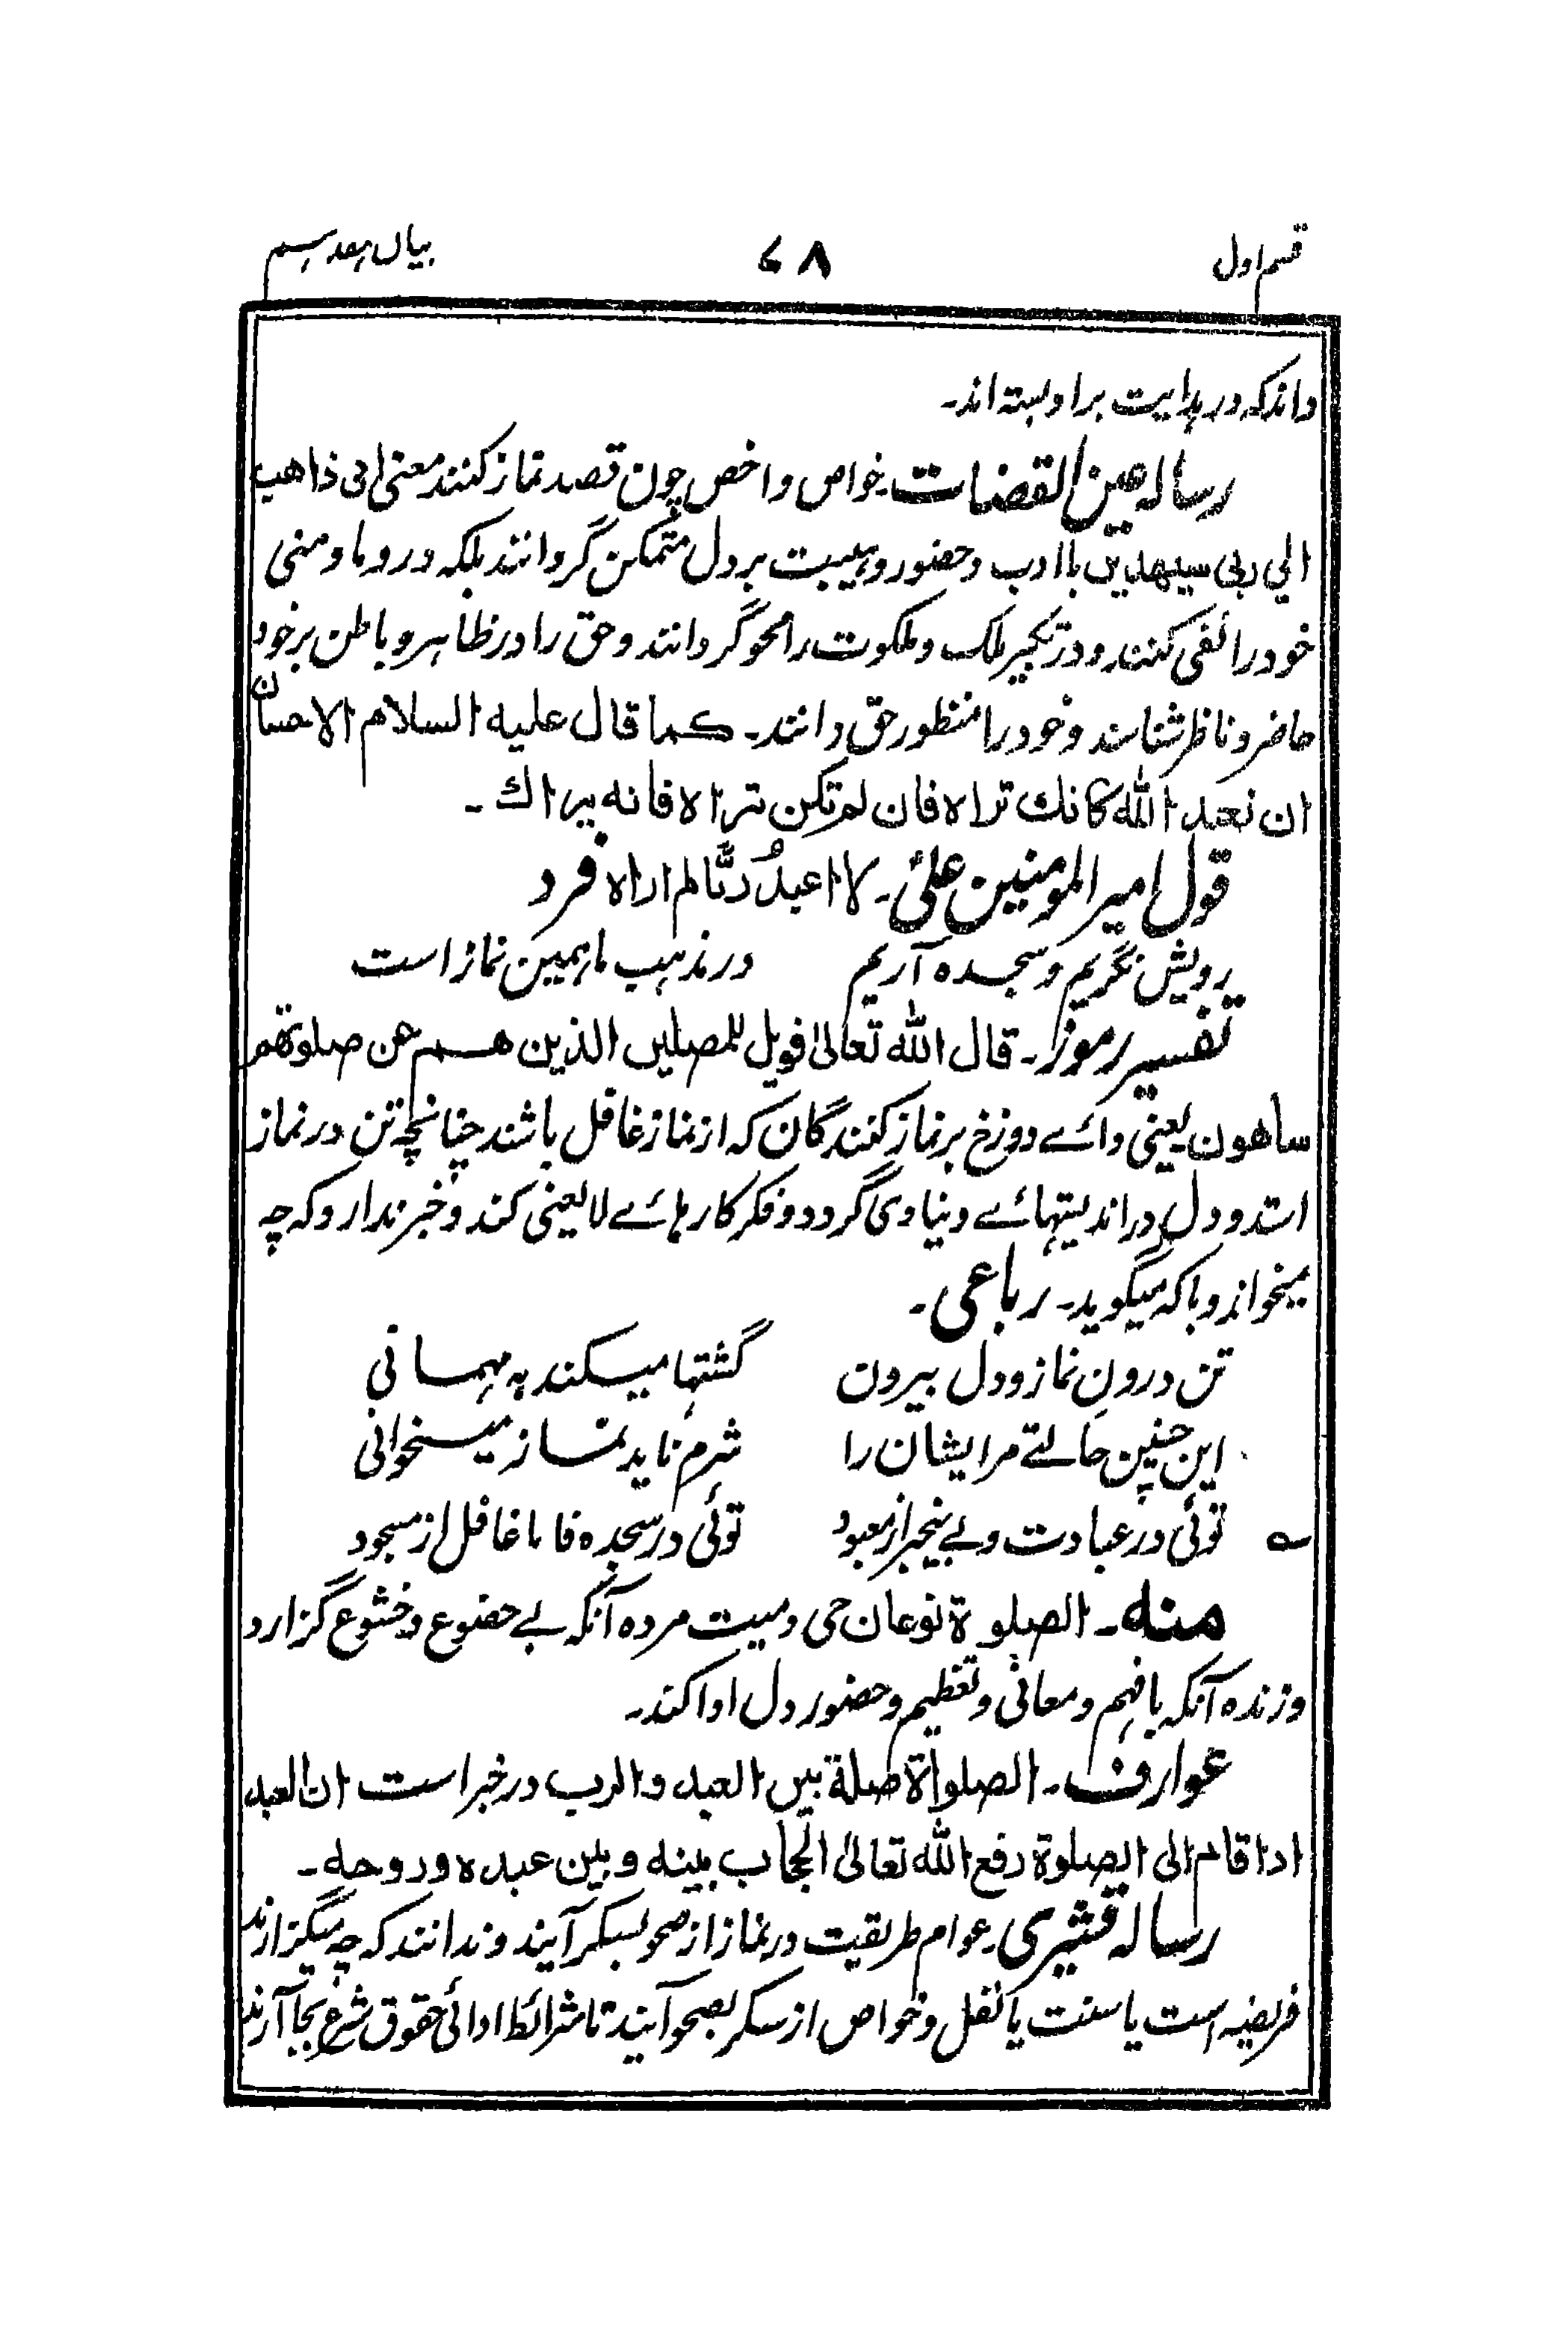 قسم اول
۷۸
بیان ہفدہم
داند که در ہدایت بر او بسته اند۔
رساله عین القضات۔ خواص و اخص چون قصد نماز کنند معنی انی ذاهب
الی ربی سیهدین باادب و حضور و ہیبت بر دل متمکن گردانند بلکه در و ما و منی
خود را نفی کنند و در تکبیر ملک و ملکوت را محو گردانند و حق را در ظاہر و باطن بر خود
حاضر و ناظر شناسند و خود را منظور حق دانند۔ کما قال علیه السلام الاحسان
ان تعبد الله کانك تراه فان لم تکن تراه فانه یراك ۔
قول امیر المومنین علیؓ۔ لا اعبدُ ربًّا لم اراه فرد
رویش نگریم و سجده آریم در مذہب ما ہمین نماز است
تفسیر رموز۔ قال الله تعالیٰ فویل للمصلین الذین هم عن صلوتهم
ساهون یعنی وائے دوزخ بر نماز کنندگان که از نماز غافل باشند چنانچه تن در نماز
استد و دل در اندیشہائے دنیاوی گردد و فکر کارہائے لایعنی کند و خبر ندارد که چه
میخواند و با که میگوید۔ رباعی۔
تن درون نماز و دل بیرون گشتہا میکند به مہمانی
این چنین حالتے مر ایشان را شرم ناید نماز میخوانی
؎ توئی در عبادت و بے خبر از معبود توئی در سجده فاما غافل از مسجود
منه۔ الصلوة نوعان حی و میت مرده آنکه بے خضوع و خشوع گزارد
و زنده آنکه با فہم و معانی و تعظیم و حضور دل ادا کند۔
عوارف۔ الصلواة صلة بین العبد و الرب در خبر است ان العبد
اذا قام الی الصلوة رفع الله تعالیٰ الحجاب بینه و بین عبده و روحه۔
رساله قشیری۔ عوام طریقت در نماز از صحو بسکر آیند و ندانند که چه میگزارند
فریضه است یا سنت یا نفل و خواص از سکر بصحو آیند تا شرائط ادائی حقوق شرع بجا آرند